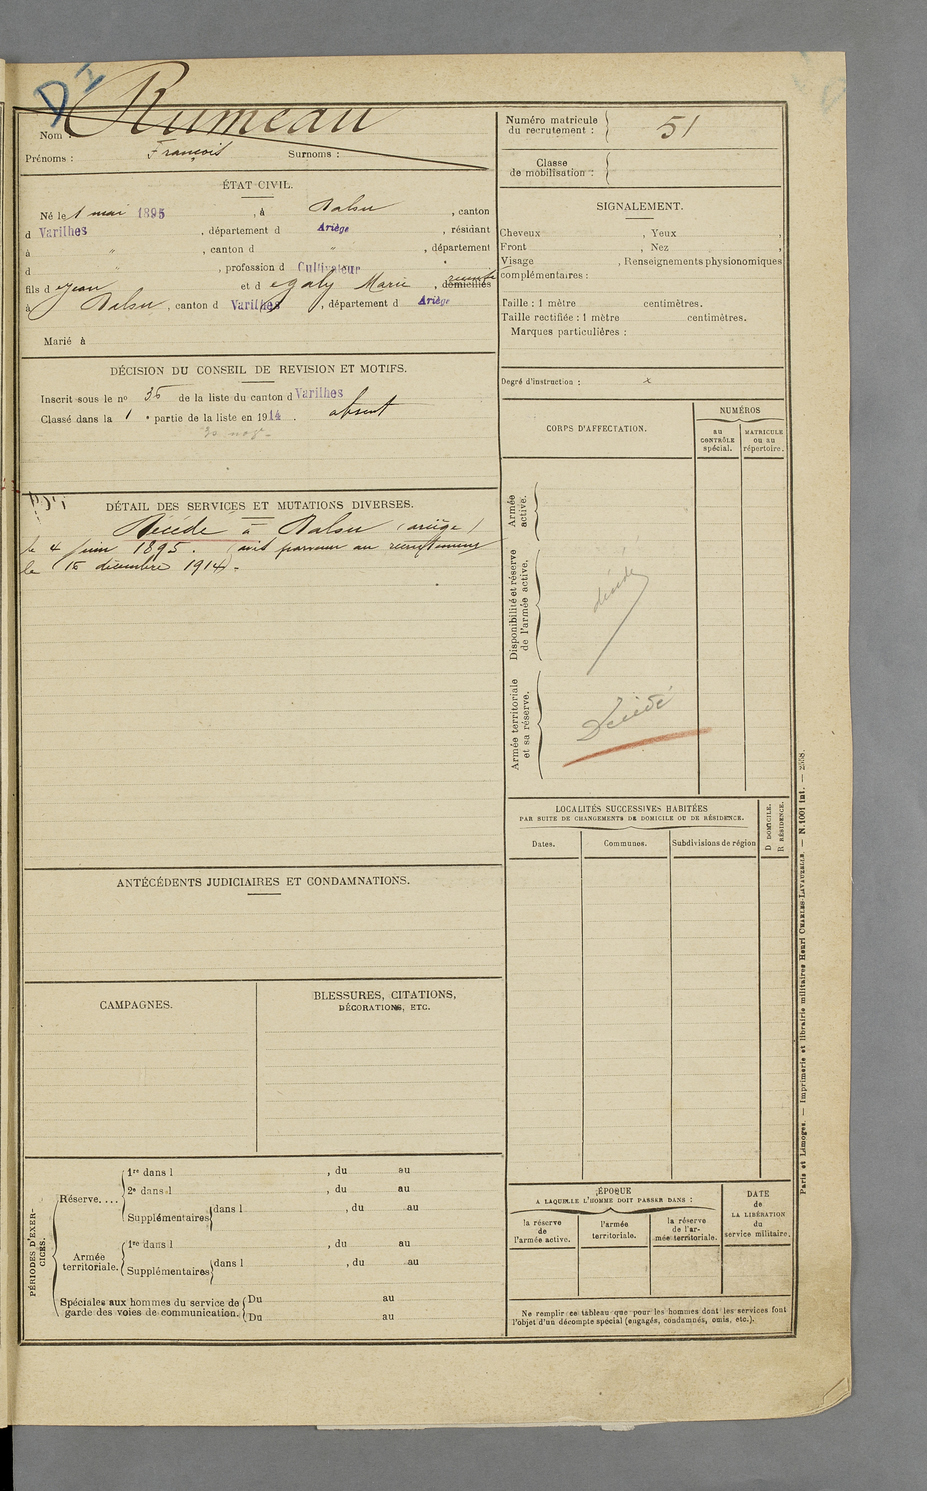 D I
Rumeau
Nom :
Prénoms : François Surnoms :
ÉTAT CIVIL.
Né le 1 mai 1895, à Dalou, canton
d Varilhes, département d Ariège, résidant
à ", canton d ", département
d ", profession d Cultivateur
fils d Jean et d Egaly Marie, domiciliés
à Dalou, canton d Varilhes, département d Ariège
Marié à
DÉCISION DU CONSEIL DE REVISION ET MOTIFS.
Inscrit sous le no 36 de la liste du canton d Varilhes
Classé dans la 1e partie de la liste en 1914. absent
DÉTAIL DES SERVICES ET MUTATIONS DIVERSES.
Décédé à Dalou (Ariège)
le 4 juin 1895. (avis parvenu au recrutement
le 16 décembre 1914).
ANTÉCÉDENTS JUDICIAIRES ET CONDAMNATIONS.
CAMPAGNES.
BLESSURES, CITATIONS,
DÉCORATIONS, ETC.
PÉRIODES D'EXER-
CICES.
Réserve....
1re dans l , du au
2e dans l , du au
Supplémentaires dans l , du au
Armée
territoriale.
1re dans l , du au
Supplémentaires dans l , du au
Spéciales aux hommes du service de
garde des voies de communication.
Du au
Du au
Numéro matricule
du recrutement : 51
Classe
de mobilisation :
SIGNALEMENT.
Cheveux , Yeux ,
Front , Nez ,
Visage , Renseignements physionomiques
complémentaires :
Taille : 1 mètre centimètres.
Taille rectifiée : 1 mètre centimètres.
Marques particulières :
Degré d'instruction : x
CORPS D'AFFECTATION.
NUMÉROS
au
CONTRÔLE
spécial.
MATRICULE
ou au
répertoire.
Armée
active.
Disponibilité et réserve
de l'armée active.
décédé
Armée territoriale
et sa réserve.
Décédé
LOCALITÉS SUCCESSIVES HABITÉES
PAR SUITE DE CHANGEMENTS DE DOMICILE OU DE RÉSIDENCE.
D DOMICILE.
R RÉSIDENCE.
Dates. Communes. Subdivisions de région
ÉPOQUE
A LAQUELLE L'HOMME DOIT PASSER DANS :
la réserve
de
l'armée active.
l'armée
territoriale.
la réserve
de l'ar-
mée territoriale.
DATE
de
LA LIBÉRATION
du
service militaire.
Ne remplir ce tableau que pour les hommes dont les services font
l'objet d'un décompte spécial (engagés, condamnés, omis, etc.).
Paris et Limoges. — Imprimerie et librairie militaires Henri CHARLES-LAVAUZELLE. — N. 1001 int. — 2558.